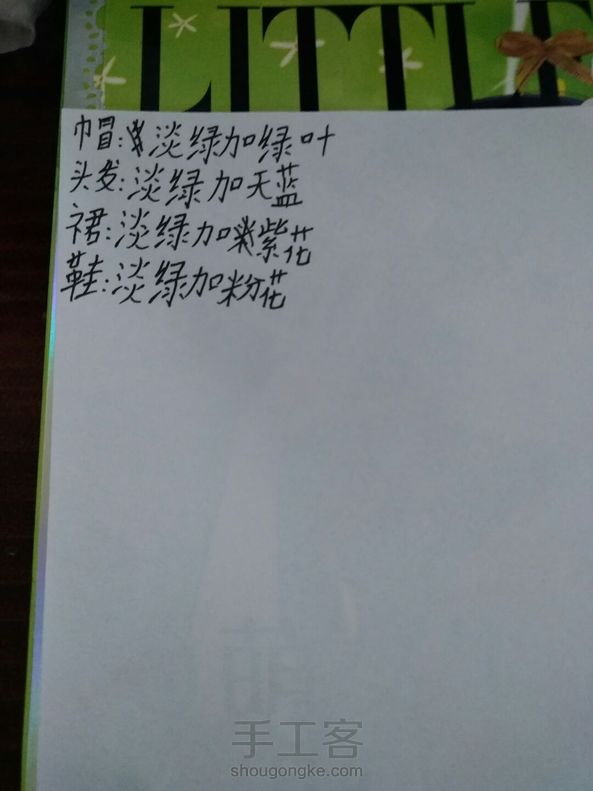 LITTLE
帽:淡绿加绿叶
头发:淡绿加天蓝
裙:淡绿加紫花
鞋:淡绿加粉花
手工客
shougongke.com